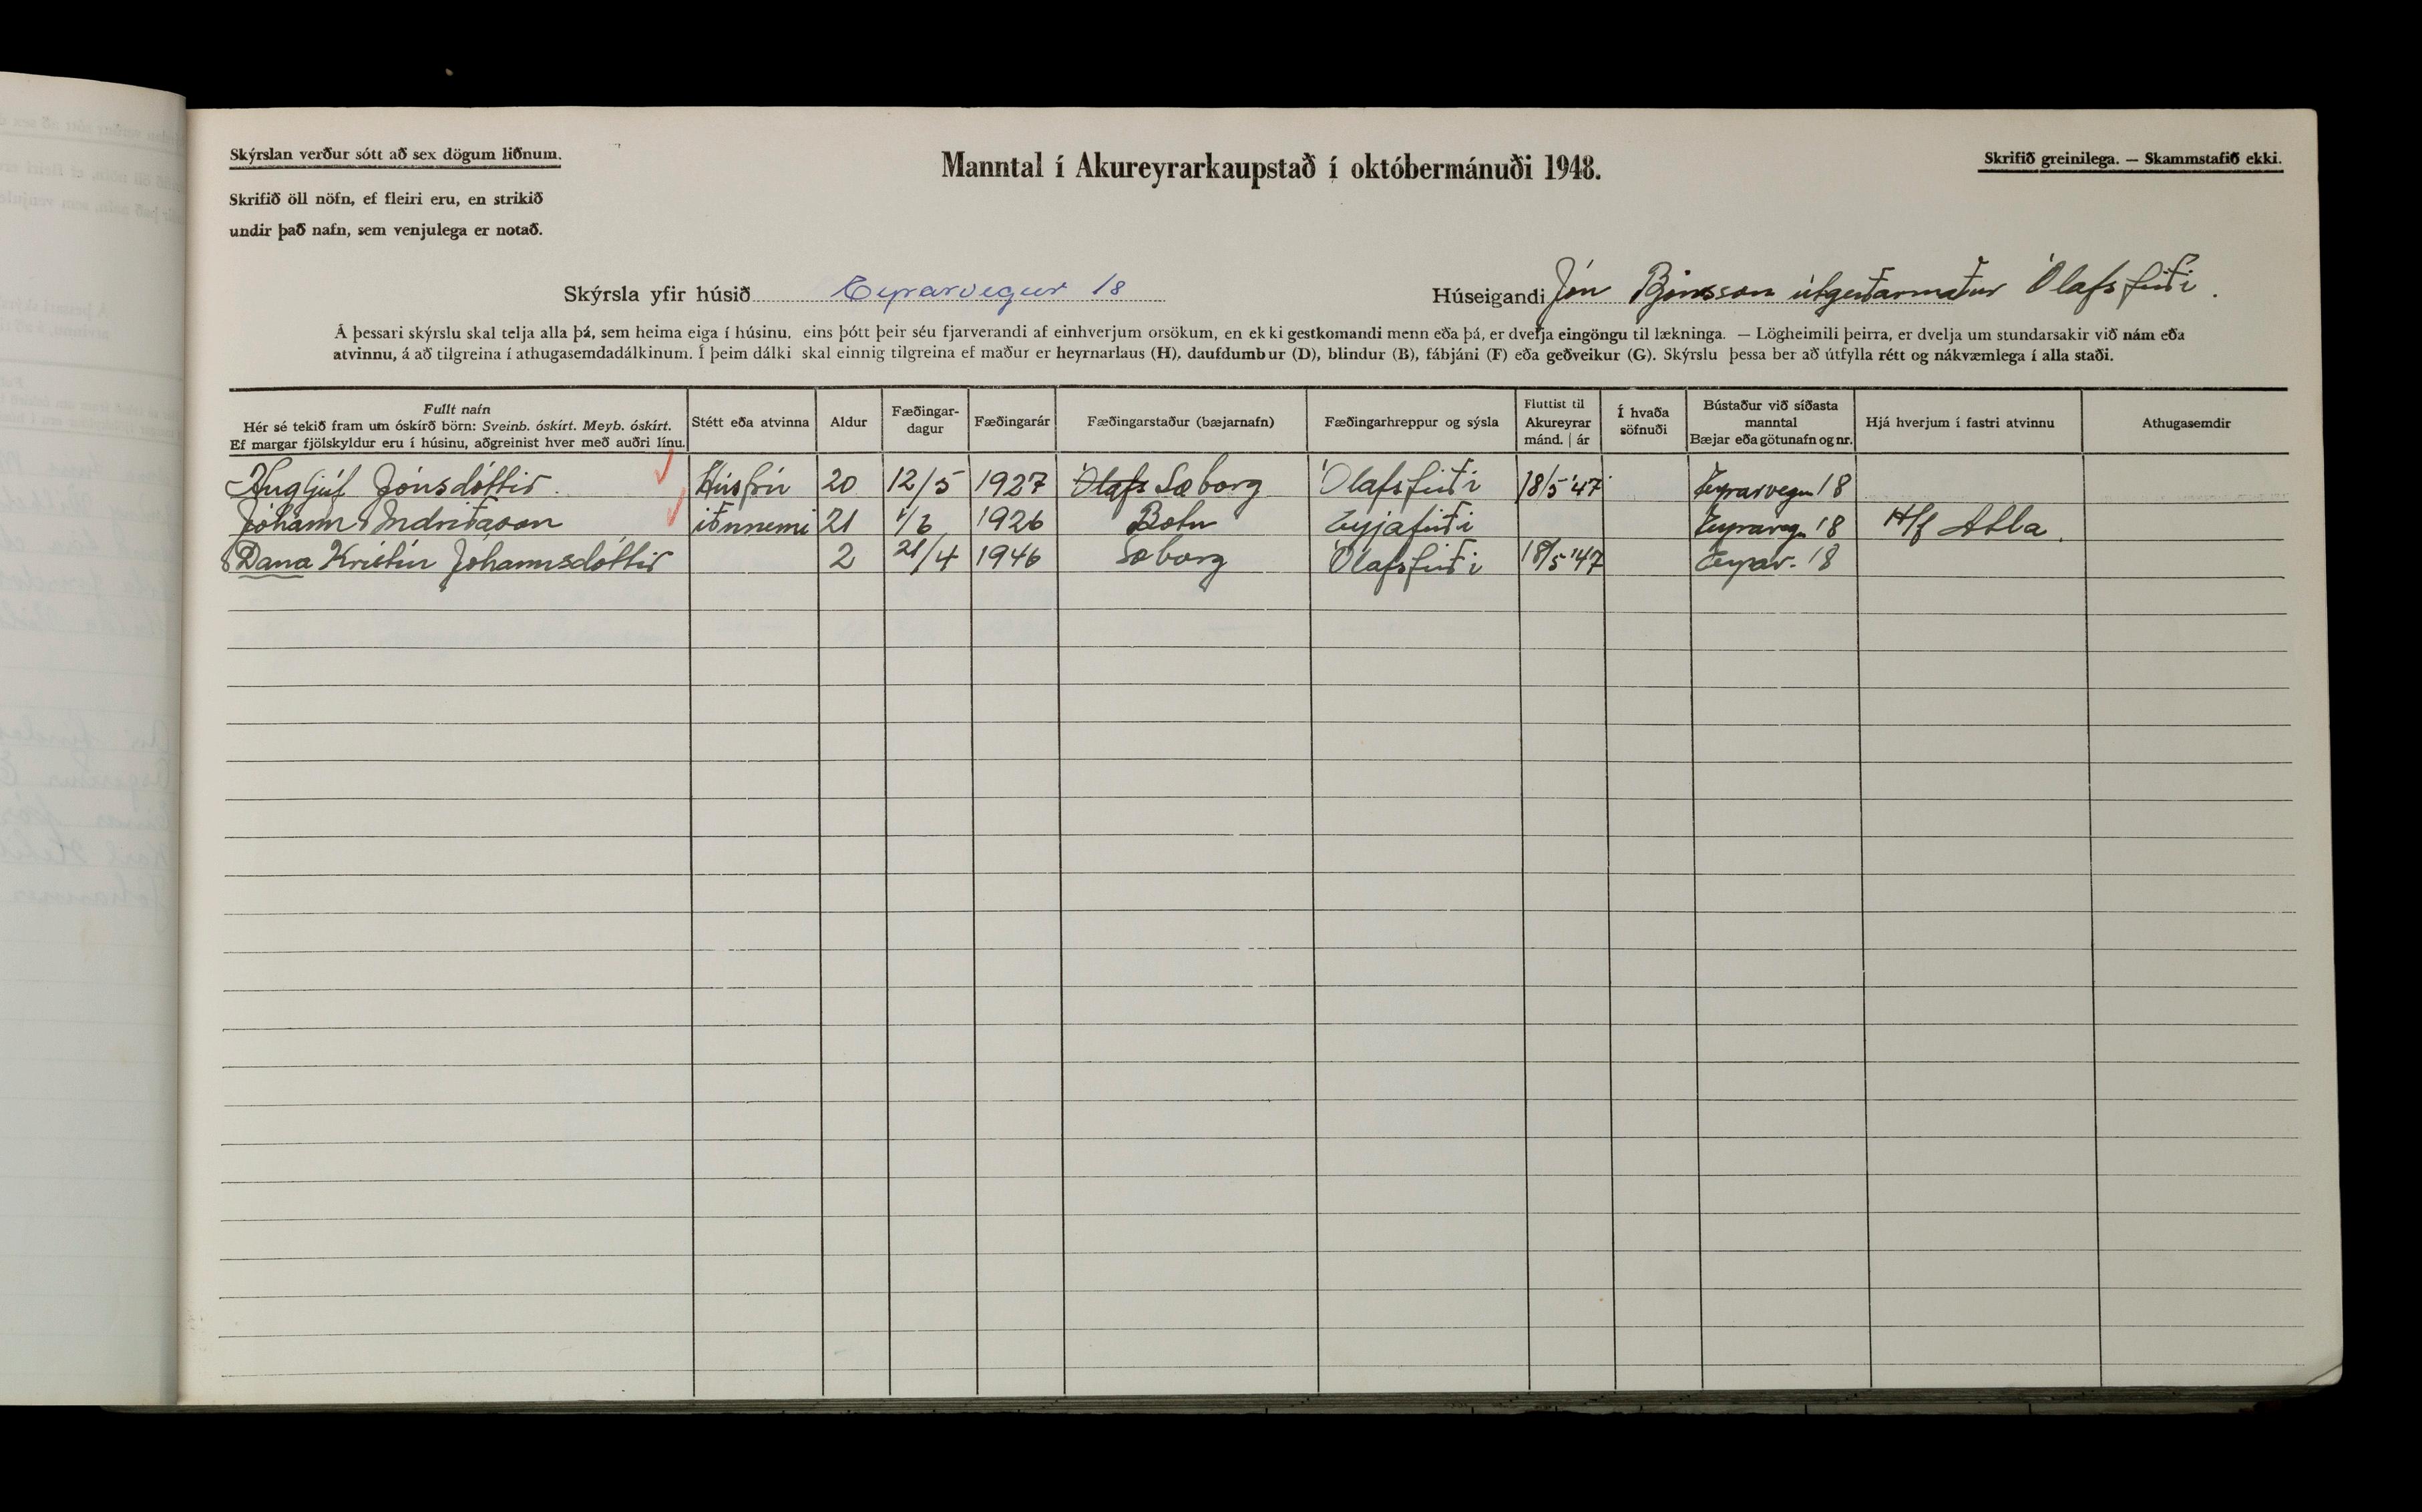 Skýrslan verður sótt að sex dögum liðnum.
Manntal í Akureyrarkaupstað í októbermánuði 1948.
Skrifið greinilega. — Skammstafið ekki.
Skrifið öll nöfn, ef fleiri eru, en strikið
undir það nafn, sem venjulega er notað.
Skýrsla yfir húsið Eyrarvegur 18
Húseigandi Jón Björnsson útgerðarmaður Ólafsfirði.
Á þessari skýrslu skal telja alla þá, sem heima eiga í húsinu, eins þótt þeir séu fjarverandi af einhverjum orsökum, en ekki gestkomandi menn eða þá, er dvelja eingöngu til lækninga. — Lögheimili þeirra, er dvelja um stundarsakir við nám eða
atvinnu, á að tilgreina í athugasemdadálkinum. Í þeim dálki skal einnig tilgreina ef maður er heyrnarlaus (H), daufdumbur (D), blindur (B), fábjáni (F) eða geðveikur (G). Skýrslu þessa ber að útfylla rétt og nákvæmlega í alla staði.
Fullt nafn
Hér sé tekið fram um óskírð börn: Sveinb. óskírt. Meyb. óskírt.
Ef margar fjölskyldur eru í húsinu, aðgreinist hver með auðri línu.
Stétt eða atvinna
Aldur
Fæðingar-
dagur
Fæðingarár
Fæðingarstaður (bæjarnafn)
Fæðingarhreppur og sýsla
Fluttist til
Akureyrar
mánd. | ár
Í hvaða
söfnuði
Bústaður við síðasta
manntal
Bæjar eða götunafn og nr.
Hjá hverjum í fastri atvinnu
Athugasemdir
Hugljúf Jónsdóttir. Húsfrú 20 12/5 1927 Ólafs Sæborg Ólafsfirði 18/5 '47 Eyrarvegur 18
Jóhann Indriðason iðnnemi 21 1/6 1926 Botn Eyjafirði Eyrarveg. 18 H/f Atla.
Dana Kristín Jóhannsdóttir 2 21/4 1946 Sæborg Ólafsfirði 18/5 '47 Eyrar. 18